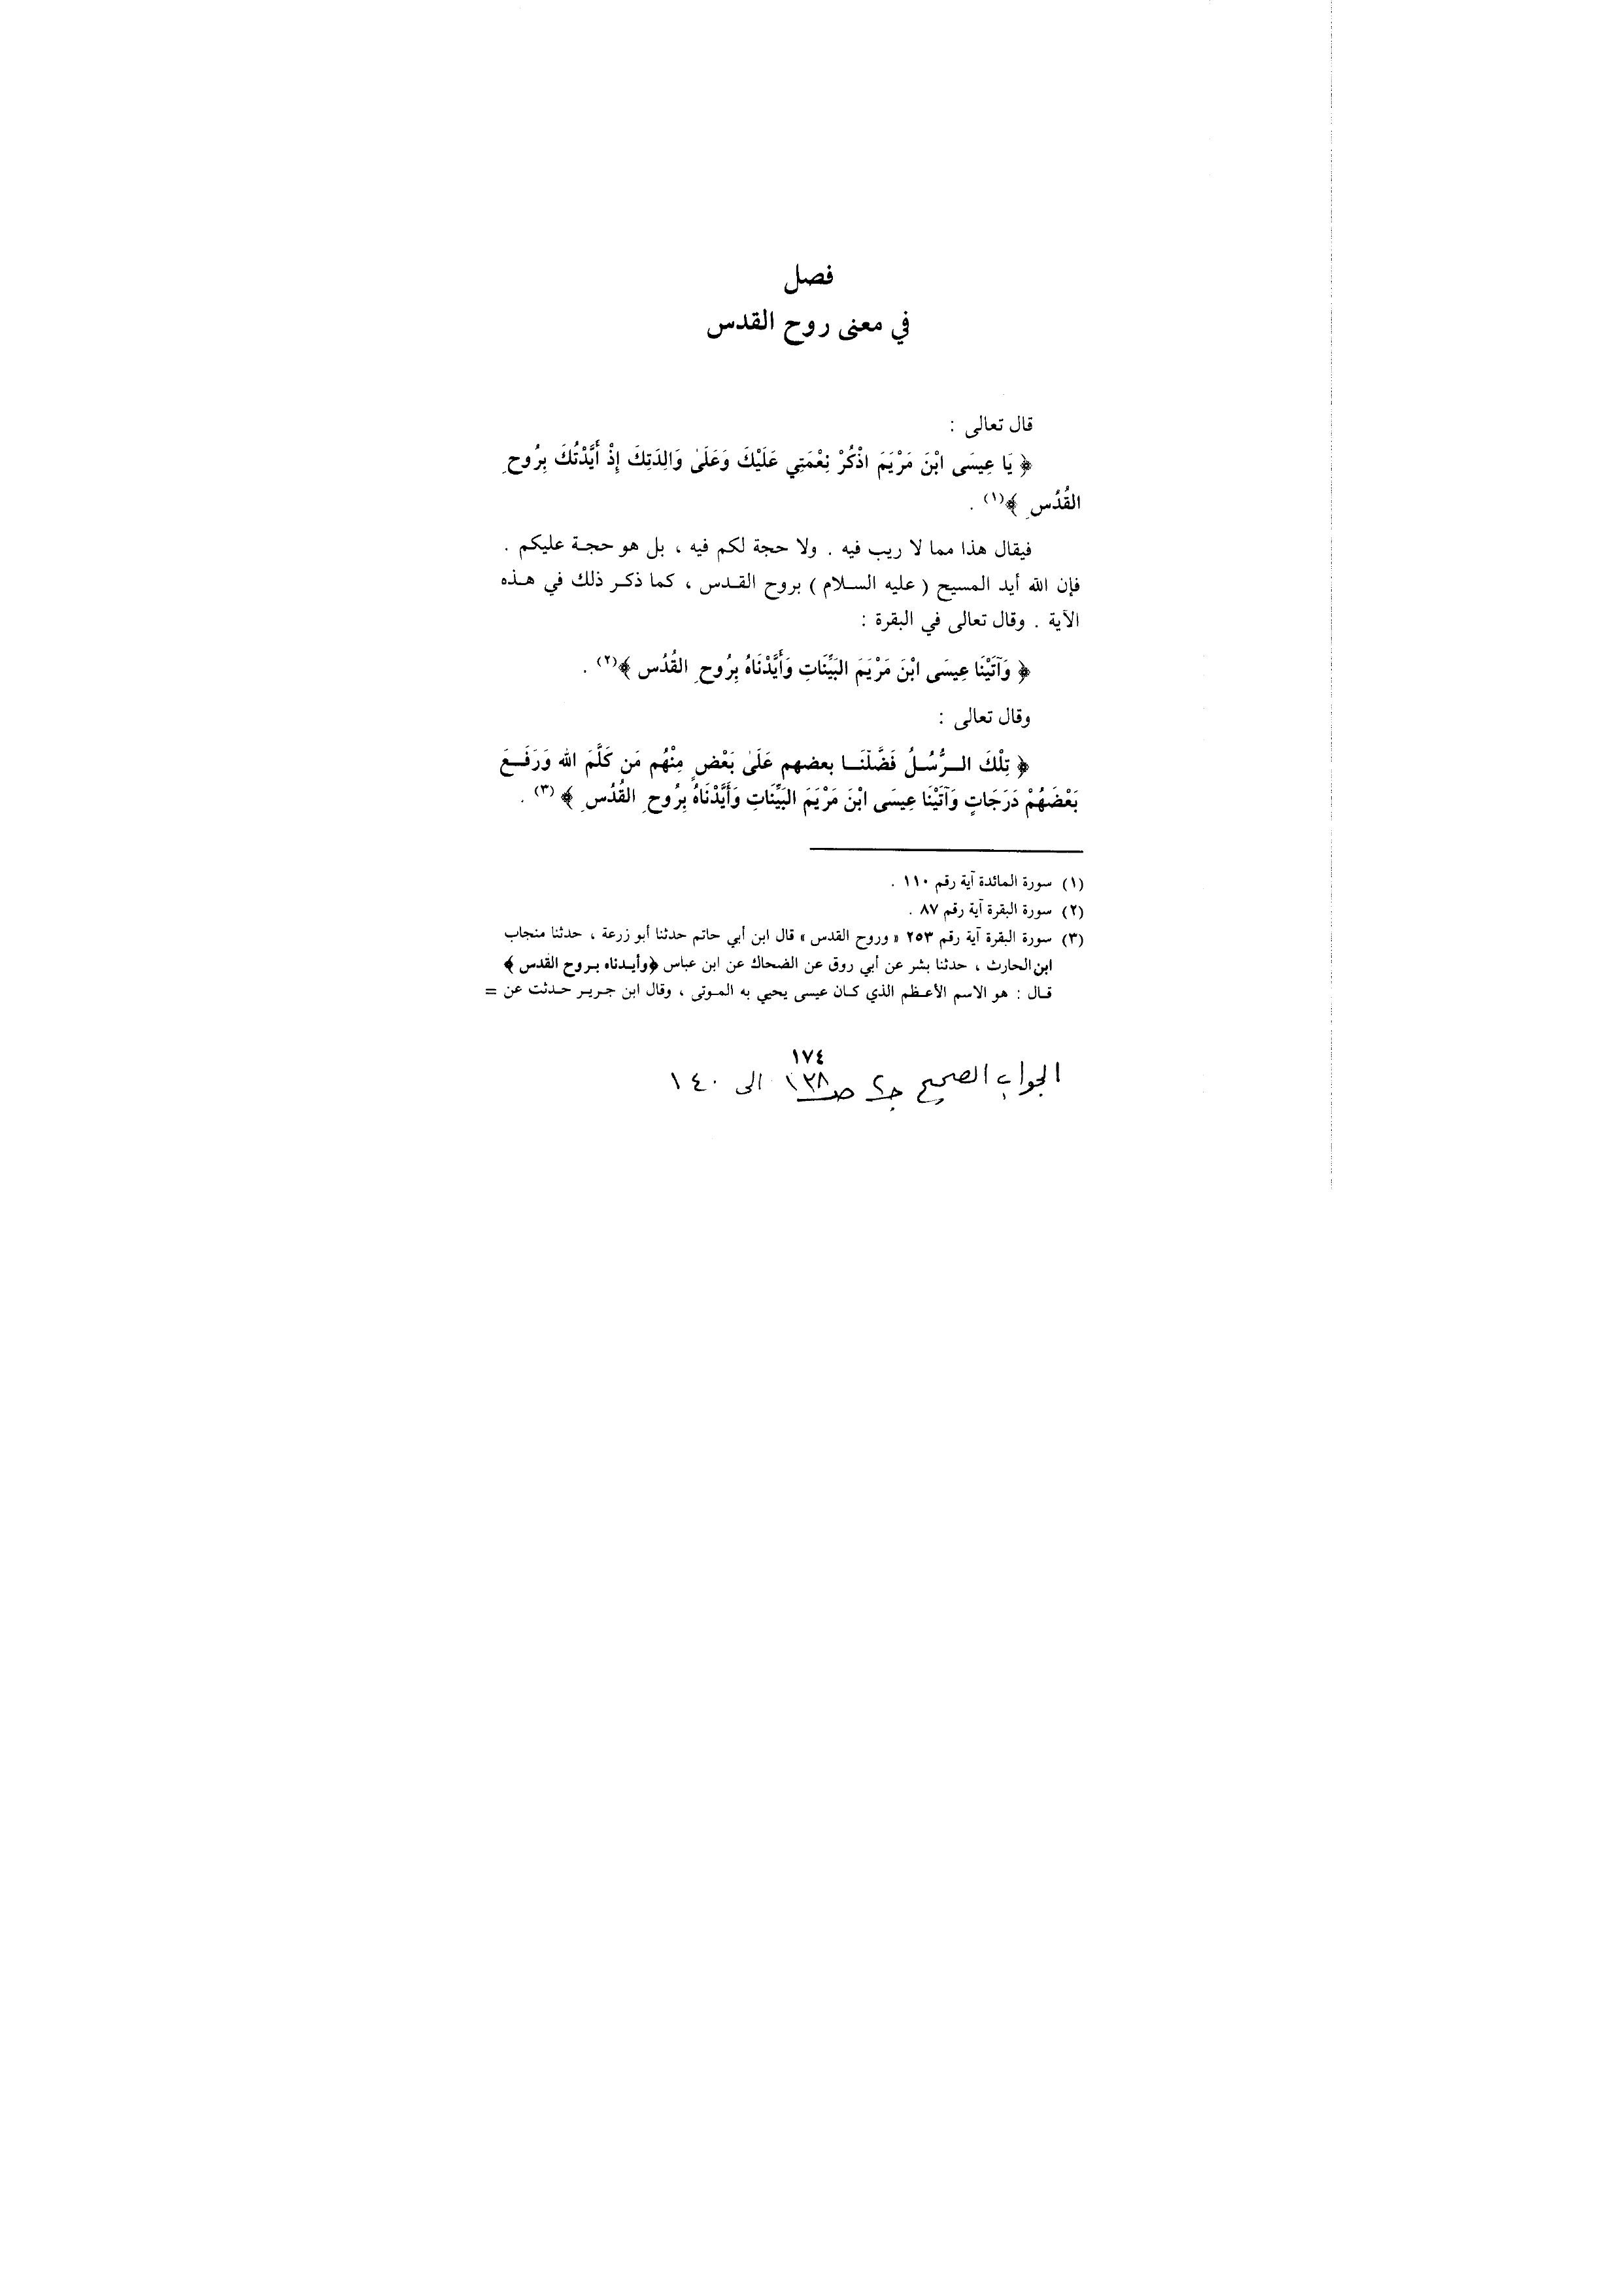 فصل
في معنى روح القدس
قال تعالى :
﴿ يَا عِيسَى ابْنَ مَرْيَمَ اذْكُرْ نِعْمَتِي عَلَيْكَ وَعَلَىٰ وَالِدَتِكَ إِذْ أَيَّدْتُكَ بِرُوحِ
القُدُسِ ﴾(١) .
فيقال هذا مما لا ريب فيه . ولا حجة لكم فيه ، بل هو حجة عليكم .
فإن الله أيد المسيح ( عليه السلام ) بروح القدس ، كما ذكر ذلك في هذه
الآية . وقال تعالى في البقرة :
﴿ وَآتَيْنَا عِيسَى ابْنَ مَرْيَمَ البَيِّنَاتِ وَأَيَّدْنَاهُ بِرُوحِ القُدُس ﴾(٢) .
وقال تعالى :
﴿ تِلْكَ الرُّسُلُ فَضَّلْنَا بعضهم عَلَىٰ بَعْضٍ مِنْهُم مَن كَلَّمَ الله وَرَفَعَ
بَعْضَهُمْ دَرَجَاتٍ وَآتَيْنَا عِيسَى ابْنَ مَرْيَمَ البَيِّنَاتِ وَأَيَّدْنَاهُ بِرُوحِ القُدُسِ ﴾ (٣) .
(١) سورة المائدة آية رقم ١١٠ .
(٢) سورة البقرة آية رقم ٨٧ .
(٣) سورة البقرة آية رقم ٢٥٣ « وروح القدس » قال ابن أبي حاتم حدثنا أبو زرعة ، حدثنا منجاب
ابن الحارث ، حدثنا بشر عن أبي روق عن الضحاك عن ابن عباس ﴿وأيدناه بروح القدس ﴾
قال : هو الاسم الأعظم الذي كان عيسى يحيي به الموتى ، وقال ابن جرير حدثت عن =
١٧٤
الجواب الصحيح ج٢ ص ١٣٨ الى ١٤٠